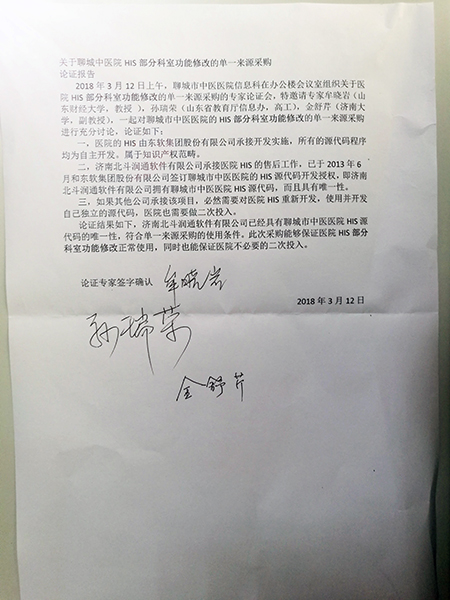 关于聊城中医院 HIS 部分科室功能修改的单一来源采购
论证报告
2018 年 3 月 12 日上午，聊城市中医医院信息科在办公楼会议室组织关于医
院 HIS 部分科室功能修改的单一来源采购的专家论证会，特邀请专家牟晓岩（山
东财经大学，教授），孙瑞荣（山东省教育厅信息办，高工），金舒芹（济南大
学，副教授），一起对聊城市中医医院的 HIS 部分科室功能修改的单一来源采购
进行充分讨论，论证如下：
一，医院的 HIS 由东软集团股份有限公司承接开发实施，所有的源代码程序
均为自主开发。属于知识产权范畴。
二，济南北斗润通软件有限公司承接医院 HIS 的售后工作，已于 2013 年 6
月和东软集团股份有限公司签订聊城市中医医院的 HIS 源代码开发授权，即济南
北斗润通软件有限公司拥有聊城市中医医院 HIS 源代码，而且具有唯一性。
三，如果其他公司承接该项目，必然需要对医院 HIS 重新开发，使用并开发
自己独立的源代码，医院也需要做二次投入。
论证结果如下，济南北斗润通软件有限公司已经具有聊城市中医医院 HIS 源
代码的唯一性，符合单一来源采购的使用条件。此次采购能够保证医院 HIS 部分
科室功能修改正常使用，同时也能保证医院不必要的二次投入。
论证专家签字确认 牟晓岩
2018 年 3 月 12 日
孙瑞荣
金舒芹